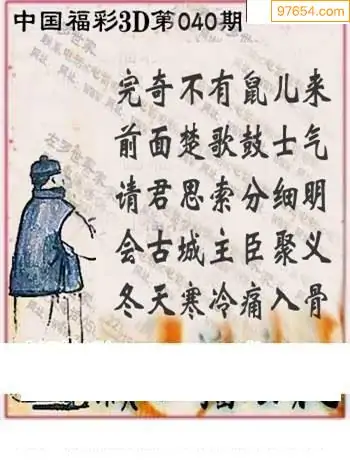 97654.com
中国福彩3D第040期
完奇不有鼠儿来
前面楚歌鼓士气
请君思索分细明
会古城主臣聚义
冬天寒冷痛入骨